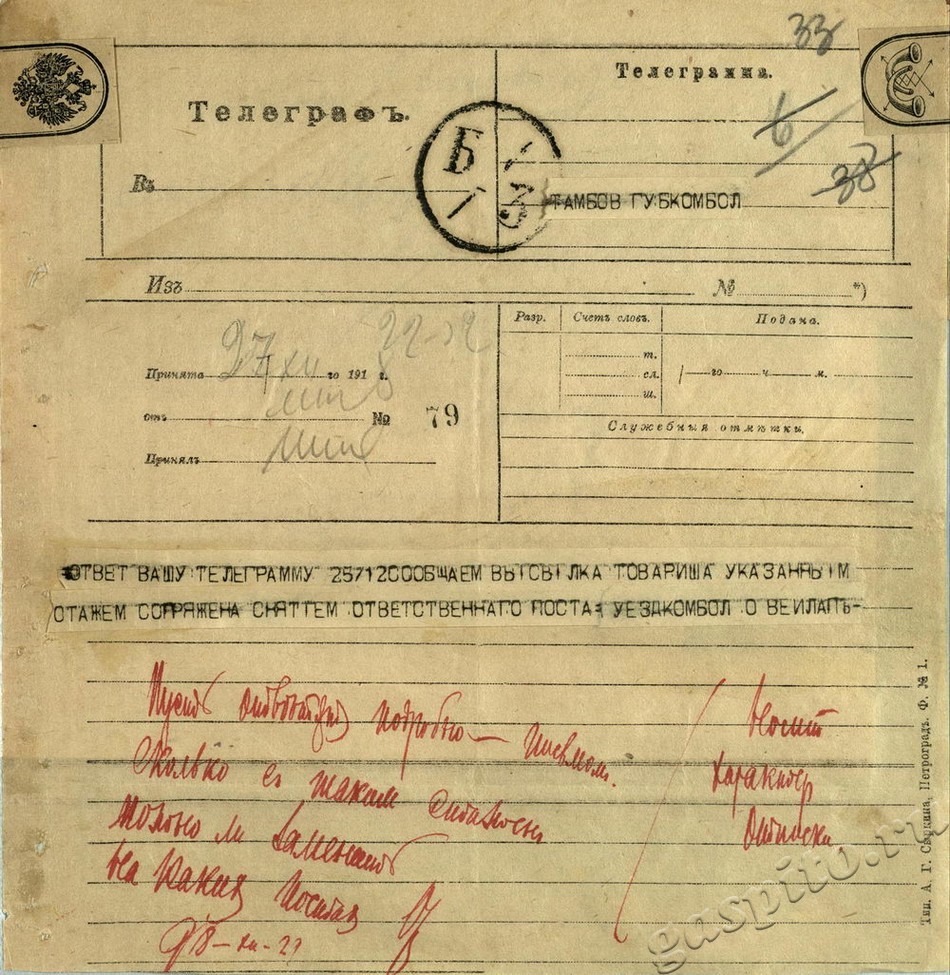 33
Телеграфъ.
Телеграмма.
6
38
Б
Въ
ТАМБОВ ГУБКОМБОЛ
Изъ № *)
Разр. Счетъ словъ. Подана.
22-52
27/XII
Принята го 191 г.
т.
сл. го ч м.
ш.
отъ № 79
Служебныя отмѣтки.
Принялъ
ОТВЕТ ВАШУ ТЕЛЕГРАММУ 25712СООБЩАЕМ ВЫСЫЛКА ТОВАРИША УКАЗАННЫМ
СТАЖЕМ СОПРЯЖЕНА СНЯТІЕМ ОТВЕТСТВЕННАГО ПОСТА= УЕЗДКОМБОЛ О ВЕИЛАПЬ-
Пусть подробно — письмом.
Сколько с таким стажем
Можно ли заменить
На каких постах
28-XII-21
Носит
характер
отписки
Тип. А. Г. Сыркина, Петроградъ. Ф. № 1.
gaspito.ru